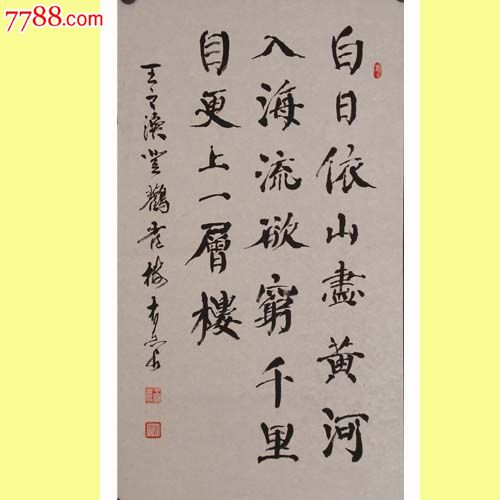 7788.com
白日依山盡黄河
入海流欲窮千里
目更上一層樓
王之渙登鸛雀樓